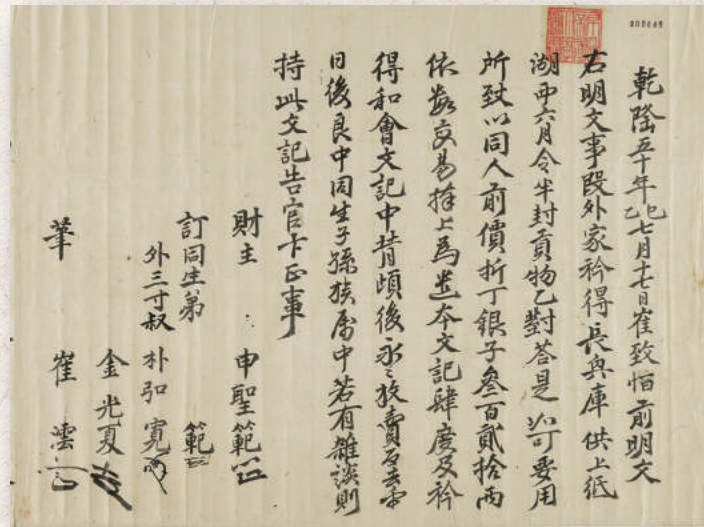 乾隆五十年乙巳七月十七日崔致恒前明文
右明文事段外家衿得長興庫供上紙
湖西六月令半封貢物乙對答是如可要用
所致以同人前價折丁銀子參百貳拾兩
依數交易捧上為遣本文記肆度及衿
得和會文記中背頉後永永放賣為去乎
日後良中同生子孫族屬中若有雜談則
持此文記告官卞正事
財主 申聖範
訂同生弟 範
外三寸叔 朴弘寬
金光夏
筆 崔澐